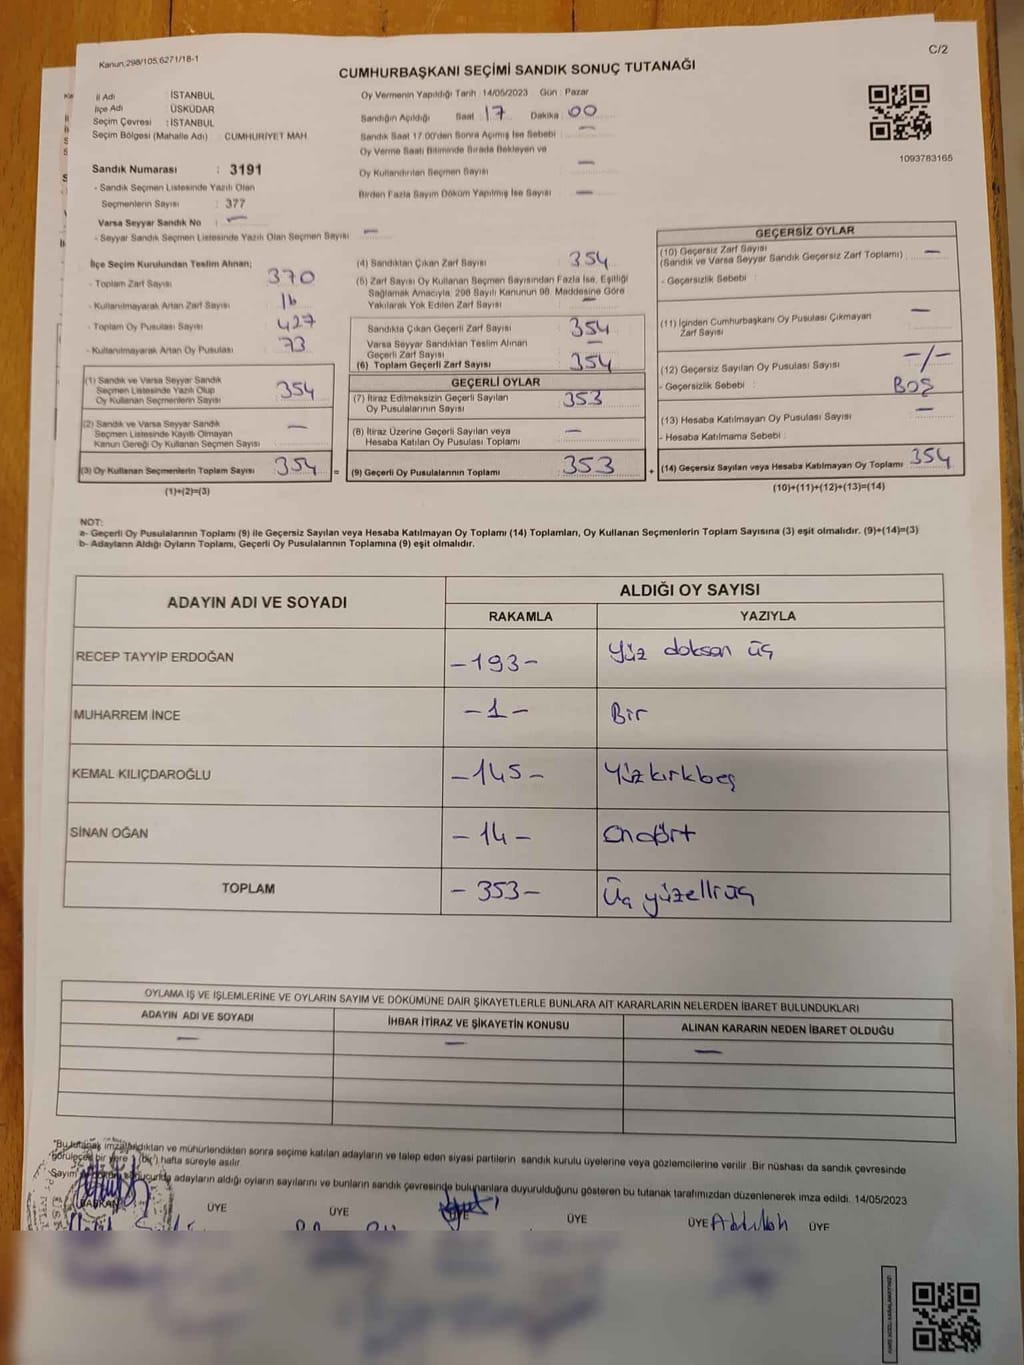 Kanun.298/105,6271/18-1
C/2
CUMHURBAŞKANI SEÇİMİ SANDIK SONUÇ TUTANAĞI
İl Adı : İSTANBUL
İlçe Adı : ÜSKÜDAR
Seçim Çevresi : İSTANBUL
Seçim Bölgesi (Mahalle Adı) : CUMHURİYET MAH
Sandık Numarası : 3191
- Sandık Seçmen Listesinde Yazılı Olan
Seçmenlerin Sayısı : 377
Varsa Seyyar Sandık No : —
- Seyyar Sandık Seçmen Listesinde Yazılı Olan Seçmen Sayısı —
Oy Vermenin Yapıldığı Tarih : 14/05/2023 Gün : Pazar
Sandığın Açıldığı Saat : 17 Dakika : 00
Sandık Saat 17.00'den Sonra Açımış İse Sebebi : —
Oy Verme Saati Bitiminde Sırada Bekleyen ve
Oy Kullandırılan Seçmen Sayısı : —
Birden Fazla Sayım Döküm Yapılmış İse Sayısı —
1093783165
İlçe Seçim Kurulundan Teslim Alınan;
- Toplam Zarf Sayısı : 370
- Kullanılmayarak Artan Zarf Sayısı : 16
- Toplam Oy Pusulası Sayısı : 427
- Kullanılmayarak Artan Oy Pusulası : 73
(1) Sandık ve Varsa Seyyar Sandık
Seçmen Listesinde Yazılı Olup
Oy Kullanan Seçmenlerin Sayısı 354
(2) Sandık ve Varsa Seyyar Sandık
Seçmen Listesinde Kayıtlı Olmayan
Kanun Gereği Oy Kullanan Seçmen Sayısı —
(3) Oy Kullanan Seçmenlerin Toplam Sayısı 354
(1)+(2)=(3)
=
(4) Sandıktan Çıkan Zarf Sayısı 354
(5) Zarf Sayısı Oy Kullanan Seçmen Sayısından Fazla İse, Eşitliği
Sağlamak Amacıyla, 298 Sayılı Kanunun 98. Maddesine Göre
Yakılarak Yok Edilen Zarf Sayısı —
Sandıkta Çıkan Geçerli Zarf Sayısı 354
Varsa Seyyar Sandıktan Teslim Alınan
Geçerli Zarf Sayısı —
(6) Toplam Geçerli Zarf Sayısı 354
GEÇERLİ OYLAR
(7) İtiraz Edilmeksizin Geçerli Sayılan
Oy Pusulalarının Sayısı 353
(8) İtiraz Üzerine Geçerli Sayılan veya
Hesaba Katılan Oy Pusulası Toplamı —
(9) Geçerli Oy Pusulalarının Toplamı 353
+
GEÇERSİZ OYLAR
(10) Geçersiz Zarf Sayısı
(Sandık ve Varsa Seyyar Sandık Geçersiz Zarf Toplamı) —
- Geçersizlik Sebebi :
(11) İçinden Cumhurbaşkanı Oy Pusulası Çıkmayan
Zarf Sayısı —
(12) Geçersiz Sayılan Oy Pusulası Sayısı -/-
- Geçersizlik Sebebi : BOŞ
(13) Hesaba Katılmayan Oy Pusulası Sayısı —
- Hesaba Katılmama Sebebi :
(14) Geçersiz Sayılan veya Hesaba Katılmayan Oy Toplamı 354
(10)+(11)+(12)+(13)=(14)
NOT:
a- Geçerli Oy Pusulalarının Toplamı (9) ile Geçersiz Sayılan veya Hesaba Katılmayan Oy Toplamı (14) Toplamları, Oy Kullanan Seçmenlerin Toplam Sayısına (3) eşit olmalıdır. (9)+(14)=(3)
b- Adayların Aldığı Oyların Toplamı, Geçerli Oy Pusulalarının Toplamına (9) eşit olmalıdır.
ADAYIN ADI VE SOYADI
ALDIĞI OY SAYISI
RAKAMLA
YAZIYLA
RECEP TAYYİP ERDOĞAN -193- Yüz doksan üç
MUHARREM İNCE -1- Bir
KEMAL KILIÇDAROĞLU -145- Yüzkırkbeş
SİNAN OĞAN -14- Ondört
TOPLAM -353- Üç yüzelliüç
OYLAMA İŞ VE İŞLEMLERİNE VE OYLARIN SAYIM VE DÖKÜMÜNE DAİR ŞİKAYETLERLE BUNLARA AİT KARARLARIN NELERDEN İBARET BULUNDUKLARI
ADAYIN ADI VE SOYADI
İHBAR İTİRAZ VE ŞİKAYETİN KONUSU
ALINAN KARARIN NEDEN İBARET OLDUĞU
— — —
"Bu tutanak imzalandıktan ve mühürlendikten sonra seçime katılan adayların ve talep eden siyasi partilerin sandık kurulu üyelerine veya gözlemcilerine verilir .Bir nüshası da sandık çevresinde
görülecek bir yere 1 (bir) hafta süreyle asılır.
Sayım adayların aldığı oyların sayılarını ve bunların sandık çevresinde bulunanlara duyurulduğunu gösteren bu tutanak tarafımızdan düzenlenerek imza edildi. 14/05/2023
BAŞKAN ÜYE ÜYE ÜYE ÜYE ÜYE Abdullah ÜYE